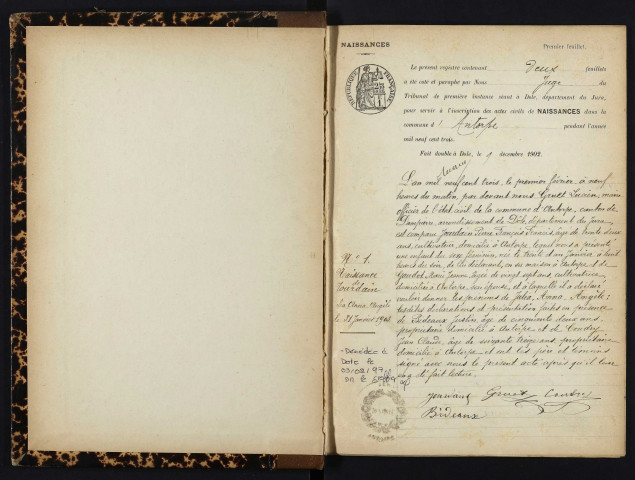 NAISSANCES
Premier feuillet.
Le présent registre contenant Deux feuillets
a été coté et paraphé par Nous Juge du
Tribunal de première instance séant à Dole, département du Jura,
pour servir à l'inscription des actes civils de NAISSANCES dans la
commune d'Antorpe pendant l'année
mil neuf cent trois.
Fait double à Dole, le 1 décembre 1902
RÉPUBLIQUE FRANÇAISE
L'an mil neuf cent trois le premier février à neuf
heures du matin, par devant nous Genet maire
officier de l'état civil de la commune d'Antorpe, canton de
Dampierre, arrondissement de Dole, département du Jura
est comparu Jourdain Pierre François Francis, âgé de trente
ans, cultivateur, domicilié à Antorpe, lequel nous a présenté
une enfant du sexe féminin, née le trente et un Janvier, à huit
heures du soir, de lui déclarant, en sa maison à Antorpe, et de
Marie âgée de vingt sept ans, cultivatrice
domiciliée à Antorpe, son épouse, et à laquelle il a déclaré
vouloir donner les prénoms de Julia, Anna, Angèle;
lesdites déclarations et présentation faites en présence
de Bideaux Justin, âgé de cinquante deux ans
propriétaire domicilié à Antorpe et de
Jean Claude, âgé de soixante ans, propriétaire
domicilié à Antorpe et ont les père et témoins
signé avec nous le présent acte après qu'il leur
en a été fait lecture.
N° 1
Naissance
Jourdain
Julia Anna Angèle
le 31 Janvier 1903
Décédée à
Dole le
03/02/97
Genet
Bideaux